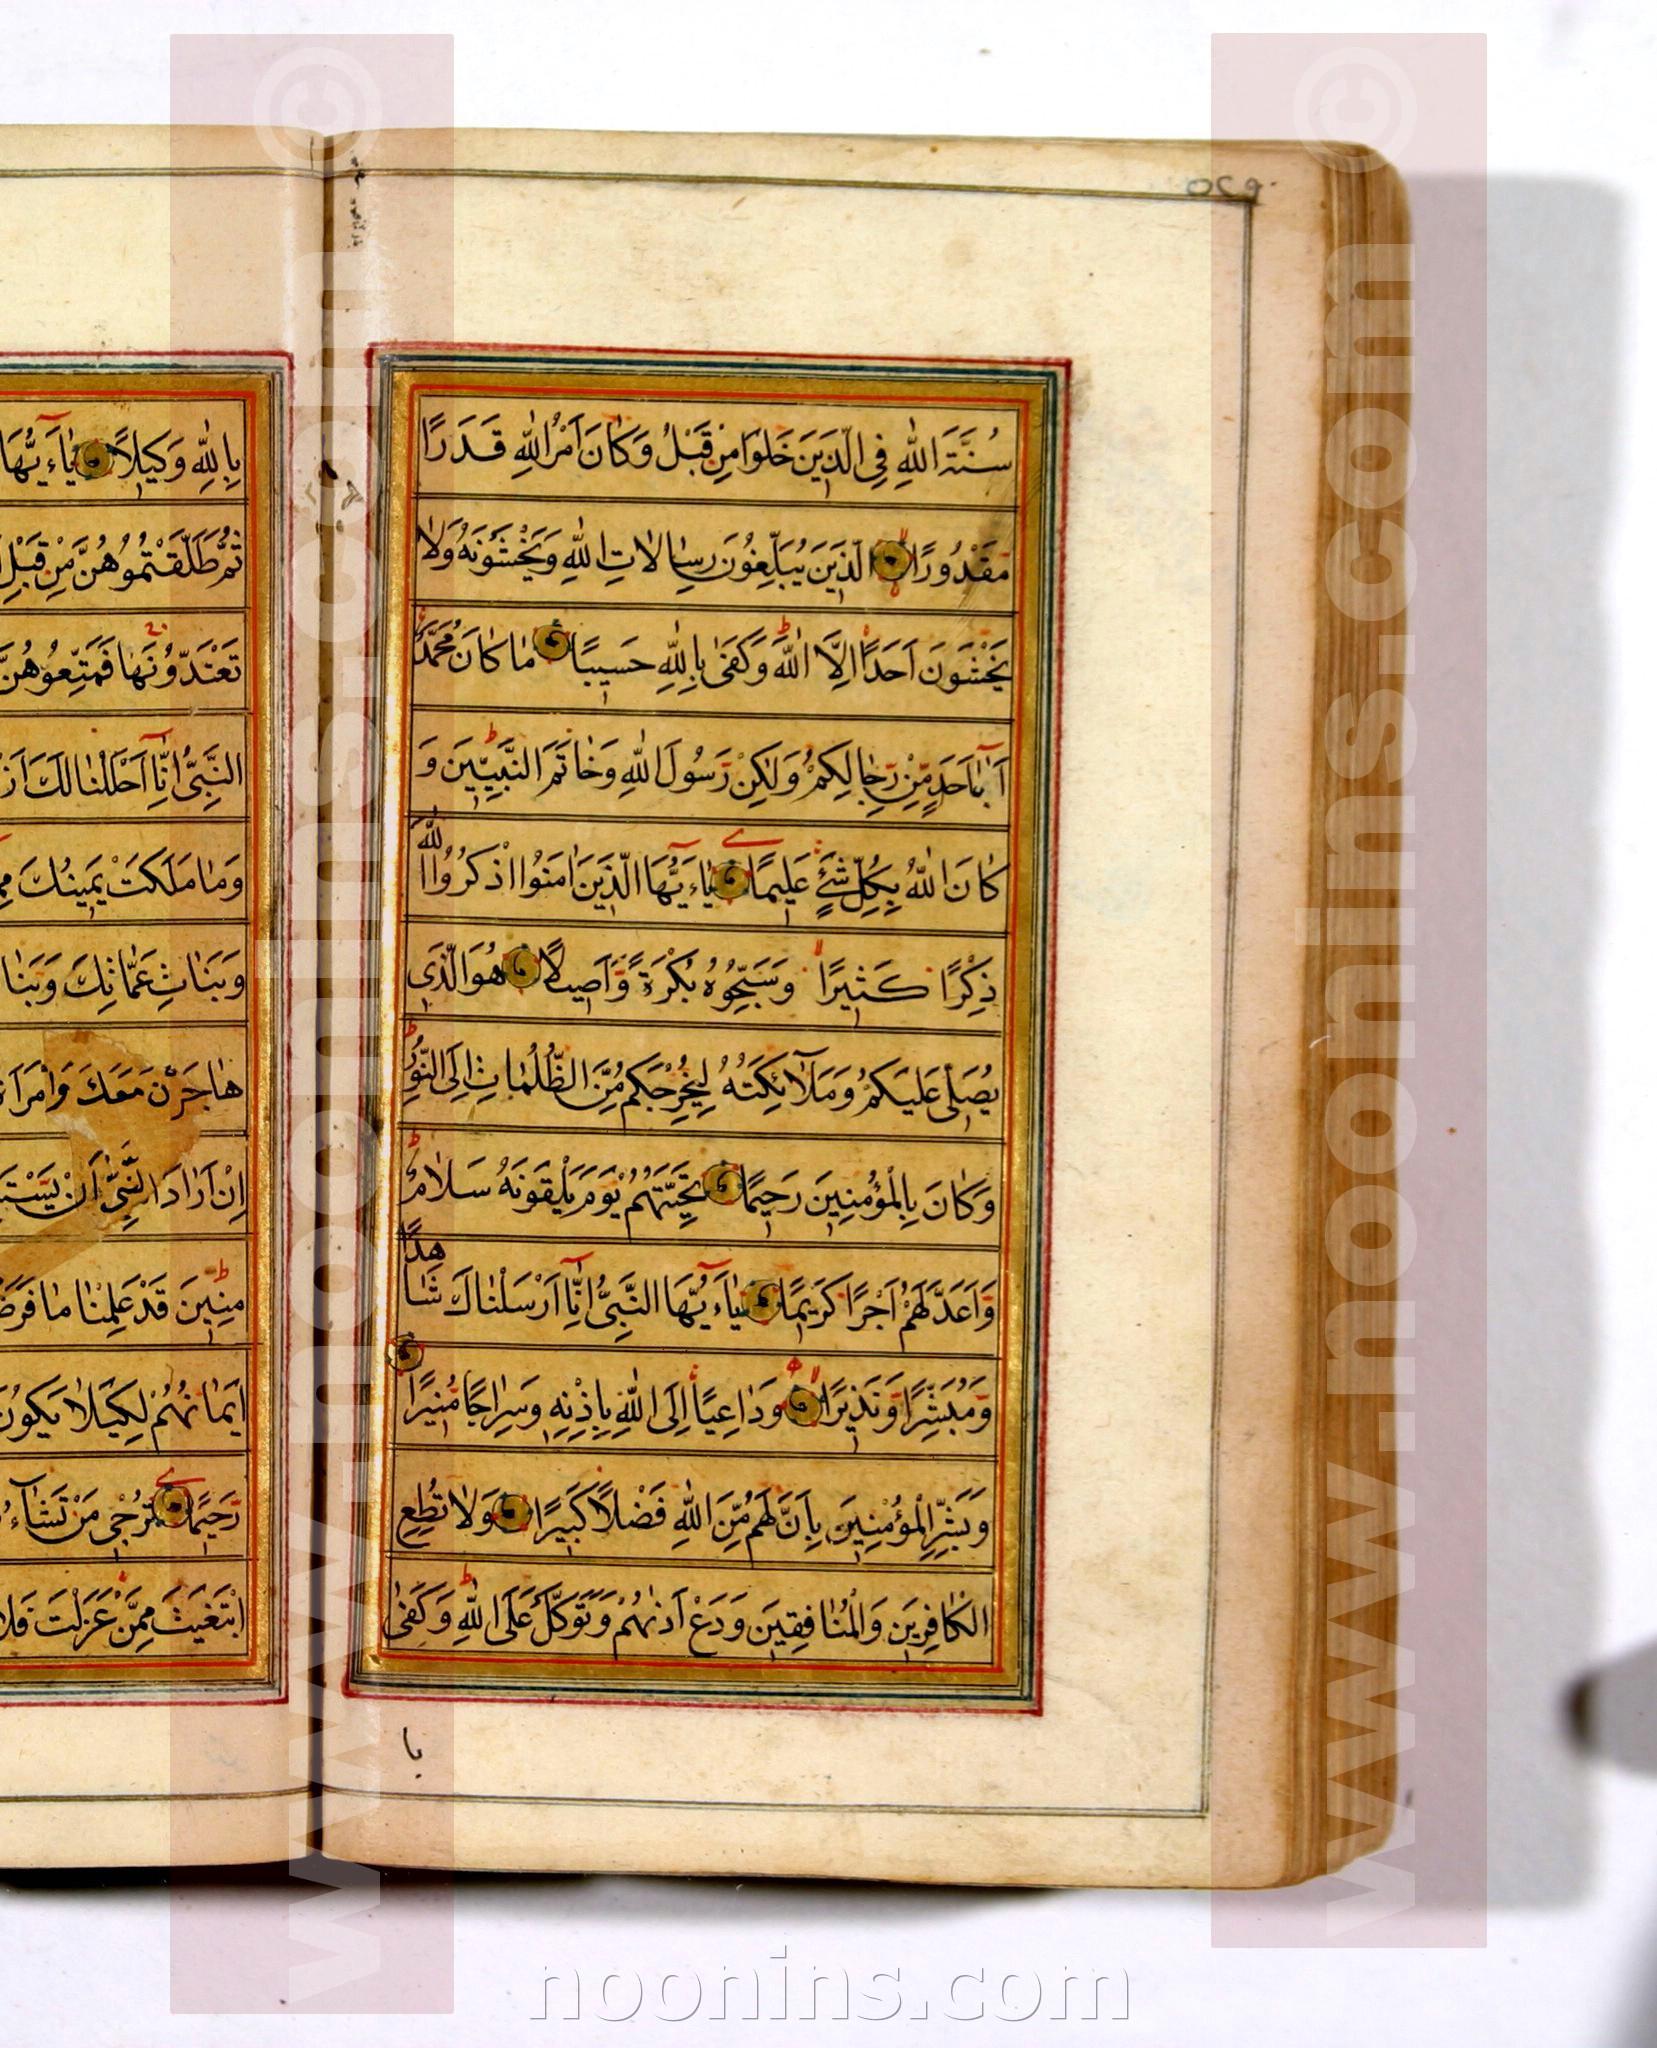 ٥٢٩
سُنَّةَ اللهِ فِي الَّذِينَ خَلَوْا مِنْ قَبْلُ وَكَانَ اَمْرُ اللهِ قَدَرًا
مَقْدُورًا الَّذِينَ يُبَلِّغُونَ رِسَالَاتِ اللهِ وَيَخْشَوْنَهُ وَلَا
يَخْشَوْنَ اَحَدًا اِلَّا اللهَ وَكَفَى بِاللهِ حَسِيبًا مَا كَانَ مُحَمَّدٌ
اَبَا اَحَدٍ مِنْ رِجَالِكُمْ وَلَكِنْ رَسُولَ اللهِ وَخَاتَمَ النَّبِيِّينَ وَ
كَانَ اللهُ بِكُلِّ شَيْءٍ عَلِيمًا يَاءَيُّهَا الَّذِينَ اٰمَنُوا اذْكُرُوا اللهَ
ذِكْرًا كَثِيرًا وَسَبِّحُوهُ بُكْرَةً وَاَصِيلًا هُوَ الَّذِي
يُصَلِّي عَلَيْكُمْ وَمَلَآئِكَتُهُ لِيُخْرِجَكُمْ مِنَ الظُّلُمَاتِ اِلَى النُّورِ
وَكَانَ بِالْمُؤْمِنِينَ رَحِيمًا تَحِيَّتُهُمْ يَوْمَ يَلْقَوْنَهُ سَلَامٌ
وَاَعَدَّ لَهُمْ اَجْرًا كَرِيمًا يَاءَيُّهَا النَّبِيُّ اِنَّا اَرْسَلْنَاكَ شَاهِدًا
وَمُبَشِّرًا وَنَذِيرًا وَدَاعِيًا اِلَى اللهِ بِاِذْنِهِ وَسِرَاجًا مُنِيرًا
وَبَشِّرِ الْمُؤْمِنِينَ بِاَنَّ لَهُمْ مِنَ اللهِ فَضْلًا كَبِيرًا وَلَا تُطِعِ
الْكَافِرِينَ وَالْمُنَافِقِينَ وَدَعْ اَذٰيهُمْ وَتَوَكَّلْ عَلَى اللهِ وَكَفَى
با
بِاللهِ وَكِيلًا يَاءَيُّهَا
ثُمَّ طَلَّقْتُمُوهُنَّ مِنْ قَبْلِ
تَعْتَدُّونَهَا فَمَتِّعُوهُنَّ
النَّبِيُّ اِنَّا اَحْلَلْنَا لَكَ
وَمَا مَلَكَتْ يَمِينُكَ
وَبَنَاتِ عَمَّاتِكَ وَبَنَا
هَاجَرْنَ مَعَكَ وَامْرَاَ
اِنْ اَرَادَ النَّبِيُّ اَنْ يَسْتَ
مِنِينَ قَدْ عَلِمْنَا مَا فَرَضْ
اَيْمَانُهُمْ لِكَيْلَا يَكُونَ
رَحِيمًا تُرْجِي مَنْ تَشَاءُ
ابْتَغَيْتَ مِمَّنْ عَزَلْتَ فَلَا
www.noonins.com ©
www.noonins.com ©
noonins.com